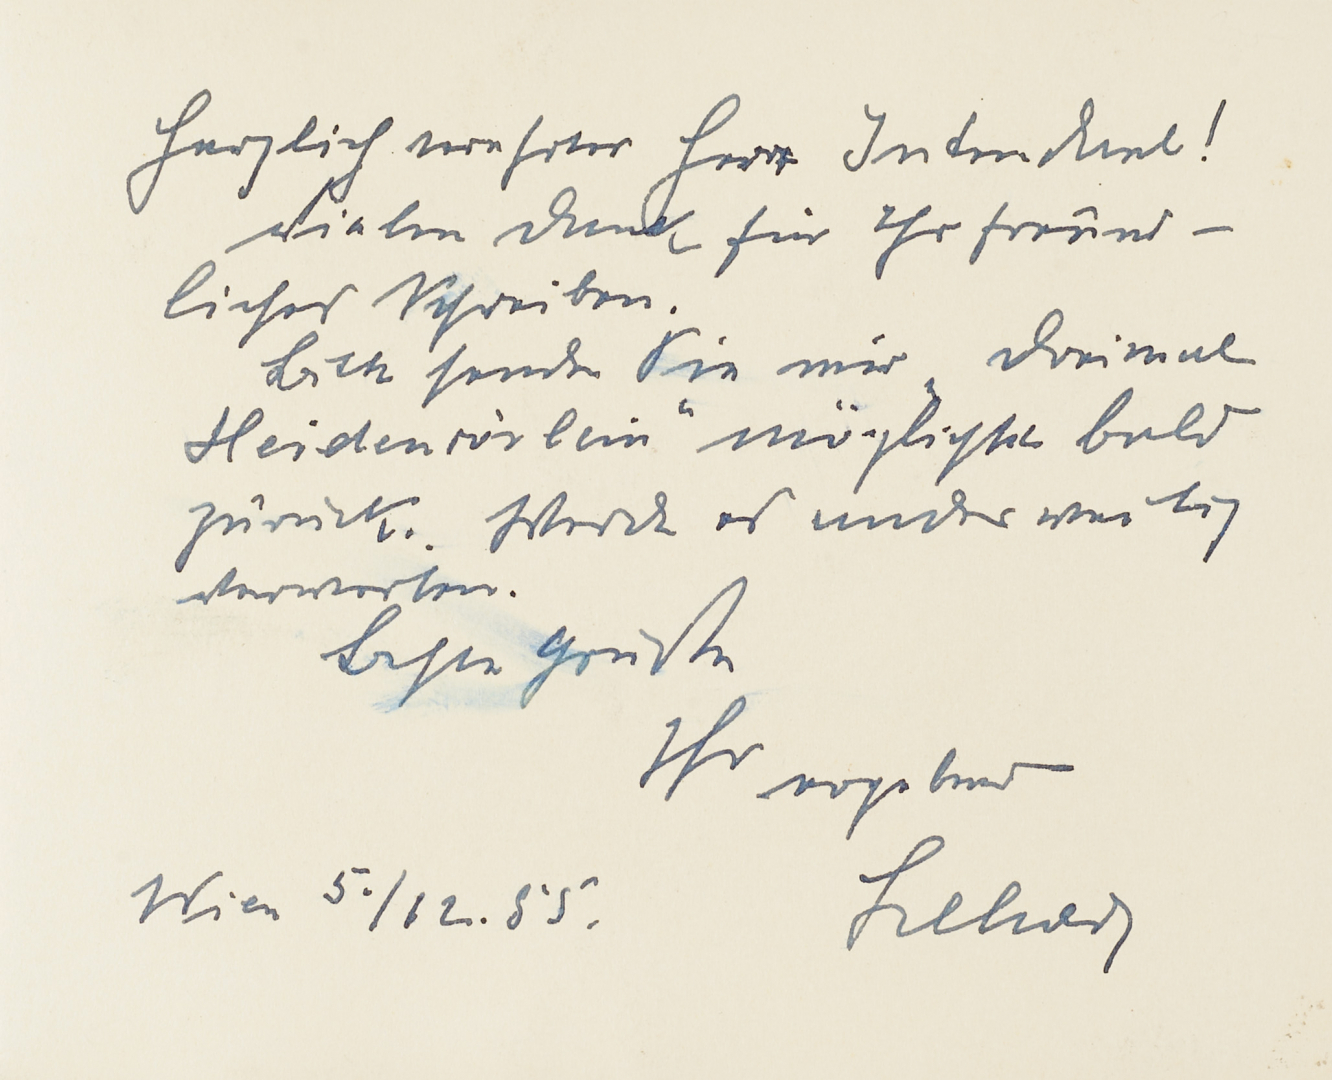 Herzlich verehrter Herr Intendant!
Vielen Dank für Ihr freund-
liches Schreiben.
Bitte senden Sie mir „Dreimal
Heidenröslein“ möglichst bald
zurück. Werde es anderweitig
verwerten.
Beste Grüße
Ihr ergebener
Wien 5./12. 55.